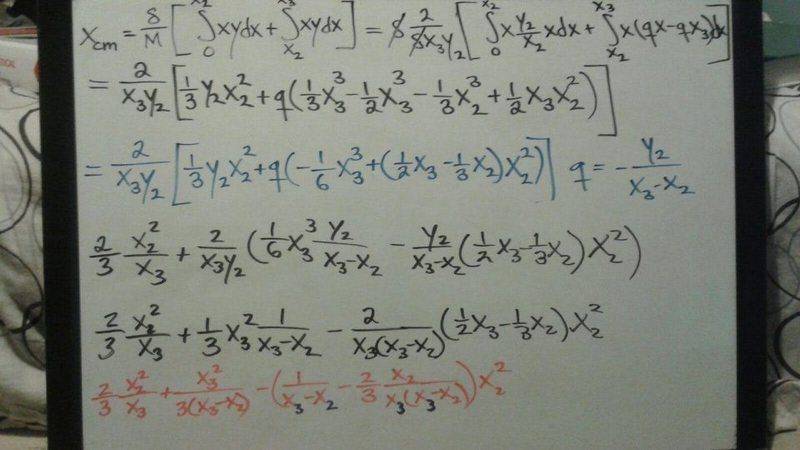 x_cm = δ/M [ ∫_0^{x_2} xydx + ∫_{x_2}^{x_3} xydx ] = δ 2/(δx_3y_2) [ ∫_0^{x_2} x y_2/x_2 xdx + ∫_{x_2}^{x_3} x(qx-qx_3)dx ]
= 2/(x_3y_2) [ 1/3 y_2x_2^2 + q(1/3 x_3^3 - 1/2 x_3^3 - 1/3 x_2^3 + 1/2 x_3x_2^2) ]
= 2/(x_3y_2) [ 1/3 y_2x_2^2 + q(-1/6 x_3^3 + (1/2 x_3 - 1/3 x_2)x_2^2) ] q = - y_2/(x_3-x_2)
2/3 x_2^2/x_3 + 2/(x_3y_2) (1/6 x_3^3 y_2/(x_3-x_2) - y_2/(x_3-x_2) (1/2 x_3 - 1/3 x_2) x_2^2)
2/3 x_2^2/x_3 + 1/3 x_3^2 1/(x_3-x_2) - 2/(x_3(x_3-x_2)) (1/2 x_3 - 1/3 x_2)x_2^2
2/3 x_2^2/x_3 + x_3^2/(3(x_3-x_2)) - (1/(x_3-x_2) - 2/3 x_2/(x_3(x_3-x_2)))x_2^2